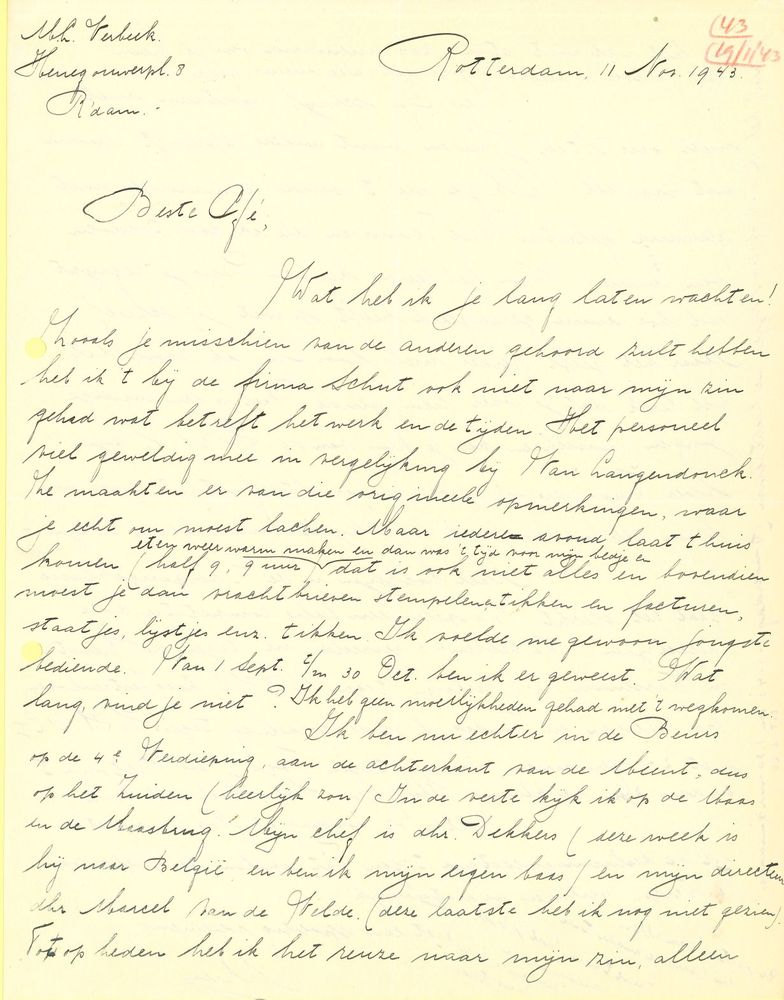 M.C. Verbeek.
Henegouwerpl. 8
R'dam.-
(43
(19/11/43
Rotterdam, 11 Nov. 1943.
Beste
Wat heb ik je lang laten wachten!
Zooals je misschien van de anderen gehoord zult hebben
heb ik 't bij de firma Schut ook niet naar mijn zin
gehad wat betreft het werk en de tijden. Het personeel
viel geweldig mee in vergelijking bij Van Langendonck.
Ze maakten er van die origineele opmerkingen, waar
je echt om moest lachen. Maar iedere avond laat thuis
eten weer warm maken en dan was 't tijd voor mijn bedje en
komen (half 9, 9 uur) dat is ook niet alles en bovendien
moest je dan vrachtbrieven stempelen tikken en facturen,
staatjes, lijstjes enz. tikken. Ik voelde me gewoon jongste
bediende. Van 1 Sept. t/m 30 Oct. ben ik er geweest. Wat
lang, vind je niet? Ik heb geen moeilijkheden gehad met 't wegkomen.
Ik ben nu echter in de Beurs
op de 4e Verdieping, aan de achterkant van de Meent, dus
op het Zuiden (heerlijk zon) In de verte kijk ik op de Maas
en de Maasbrug. Mijn chef is dhr. Dekkers (deze week is
hij naar België en ben ik mijn eigen baas) en mijn directeur
dhr Marcel Van de Velde. (deze laatste heb ik nog niet gezien).
Tot op heden heb ik het reuze naar mijn zin, alleen